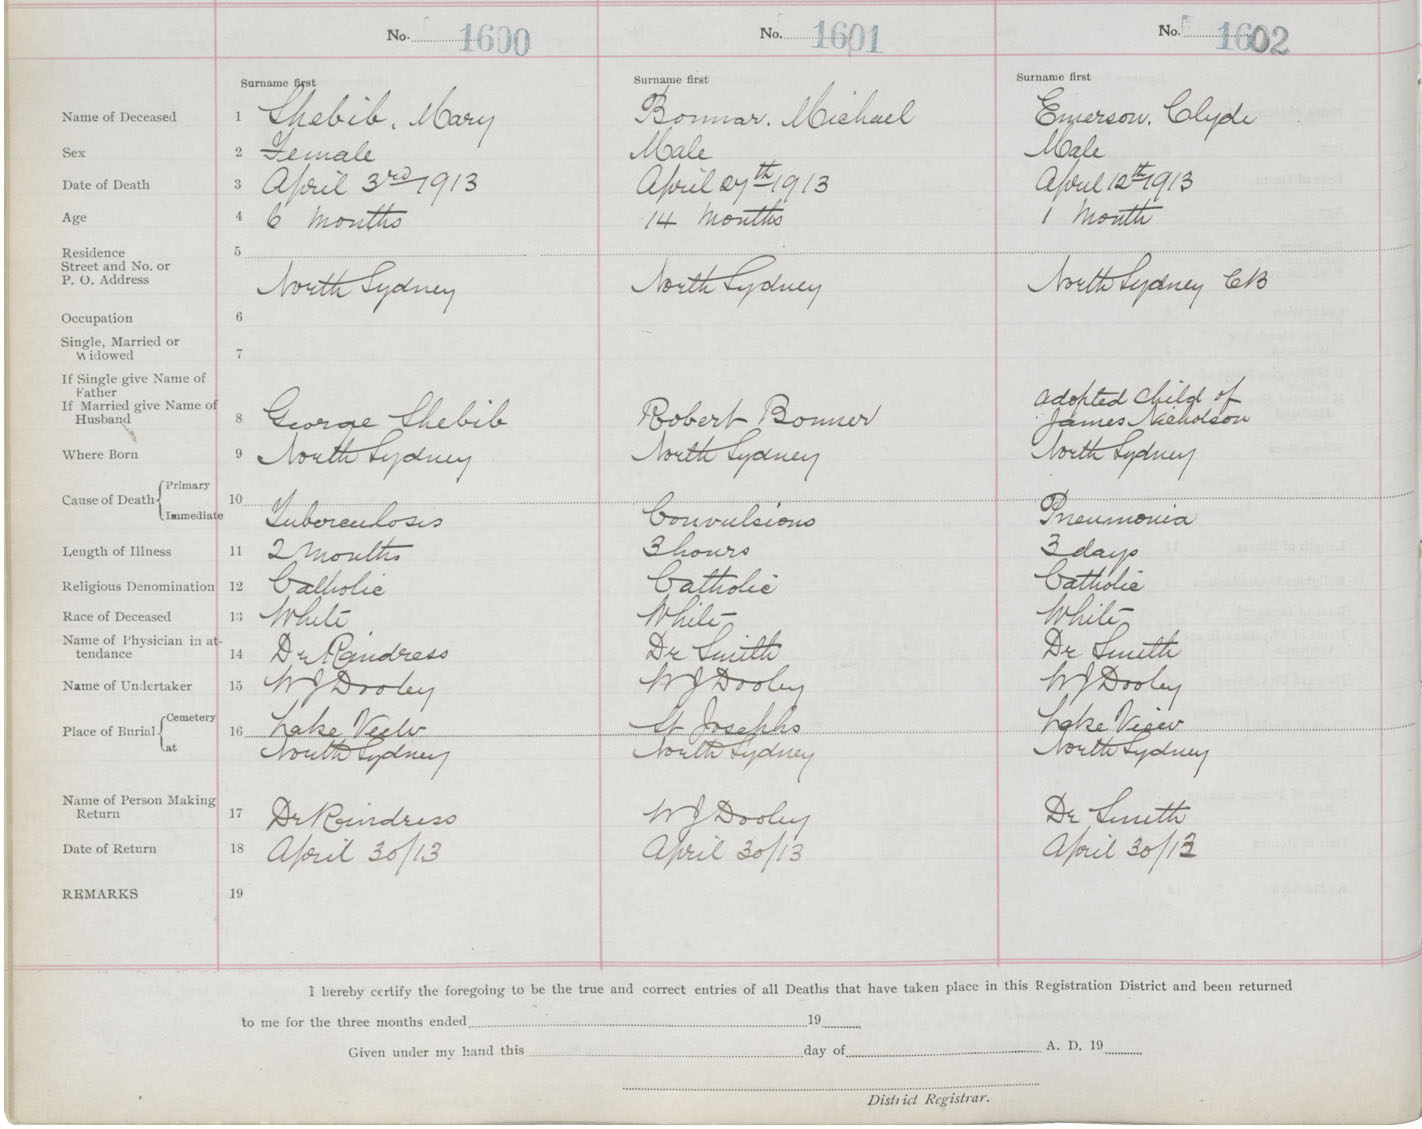 No. 1600 No. 1601 No. 1602
Surname first Surname first Surname first
Name of Deceased 1 Shebib, Mary Bonnar, Michael Emerson, Clyde
Sex 2 Female Male Male
Date of Death 3 April 3rd 1913 April 27th 1913 April 12th 1913
Age 4 6 months 14 months 1 month
Residence 5
Street and No. or
P. O. Address North Sydney North Sydney North Sydney CB
Occupation 6
Single, Married or
Widowed 7
If Single give Name of
Father adopted child of
If Married give Name of
Husband 8 George Shebib Robert Bonner James Nicholson
Where Born 9 North Sydney North Sydney North Sydney
Primary
Cause of Death 10
Immediate Tuberculosis Convulsions Pneumonia
Length of Illness 11 2 months 3 hours 3 days
Religious Denomination 12 Catholic Catholic Catholic
Race of Deceased 13 White White White
Name of Physician in at-
tendance 14 Dr Rindress Dr Smith Dr Smith
Name of Undertaker 15 WJ Dooley WJ Dooley WJ Dooley
Cemetery
Place of Burial 16 Lake View St Josephs Lake View
at North Sydney North Sydney North Sydney
Name of Person Making
Return 17 Dr Rindress WJ Dooley Dr Smith
Date of Return 18 April 30/13 April 30/13 April 30/13
REMARKS 19
I hereby certify the foregoing to be the true and correct entries of all Deaths that have taken place in this Registration District and been returned
to me for the three months ended 19
Given under my hand this day of A. D. 19
District Registrar.